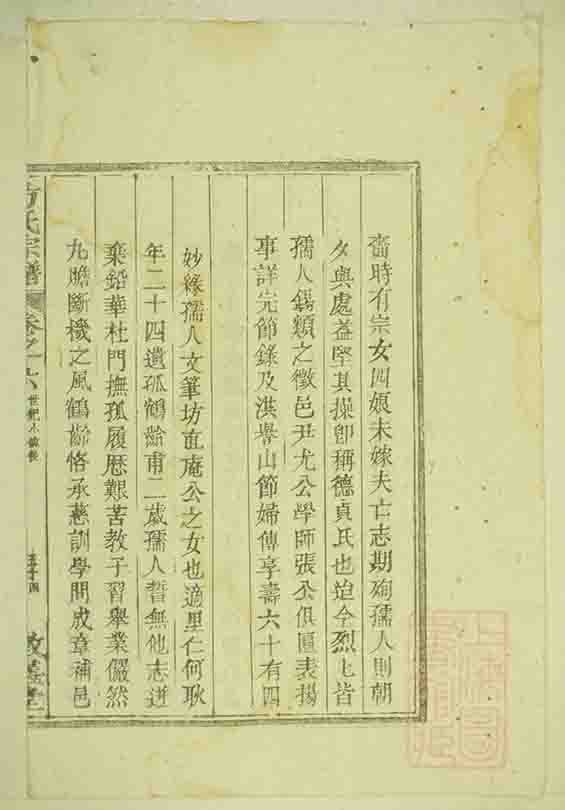 嗇時有宗女四娘未嫁夫亡志期殉孺人則朝
夕與處益堅其操卽稱德貞氏也迨仝烈七皆
孺人錫類之徵邑尹尤公學師張公俱匾表揚
事詳完節錄及洪譽山節婦傳享壽六十有四
妙緣孺人文筆坊直庵公之女也適里仁何耿
年二十四遺孤鶴齡甫二歲孺人誓無他志迸
棄鉛華杜門撫孤履歷艱苦教子習舉業儼然
九膽斷機之風鶴齡恪承慈訓學問成章補邑
方氏宗譜 卷之 世紀小傳